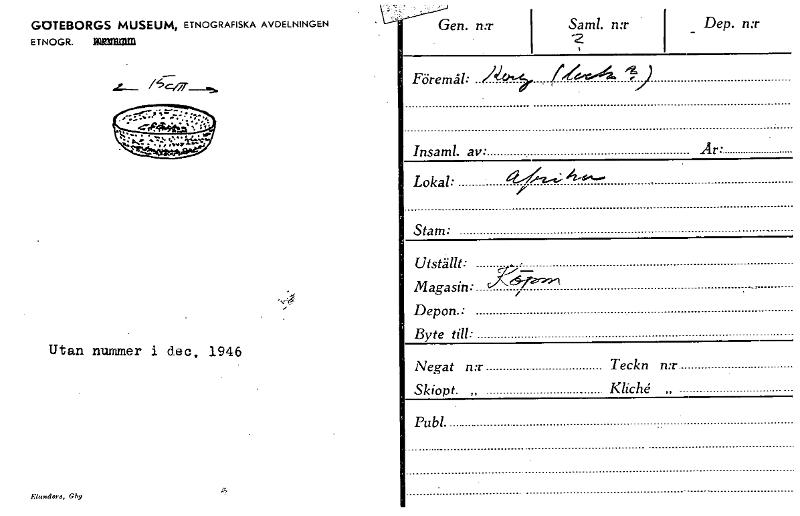 GÖTEBORGS MUSEUM, ETNOGRAFISKA AVDELNINGEN
ETNOGR.
15cm
Utan nummer i dec. 1946
Elanders, Gbg
Gen. n:r Saml. n:r Dep. n:r
?
Föremål: Korg (lock?)
Insaml. av: År:
Lokal: Afrika
Stam:
Utställt:
Magasin:
Depon.:
Byte till:
Negat n:r Teckn n:r
Skiopt. „ Kliché „
Publ.